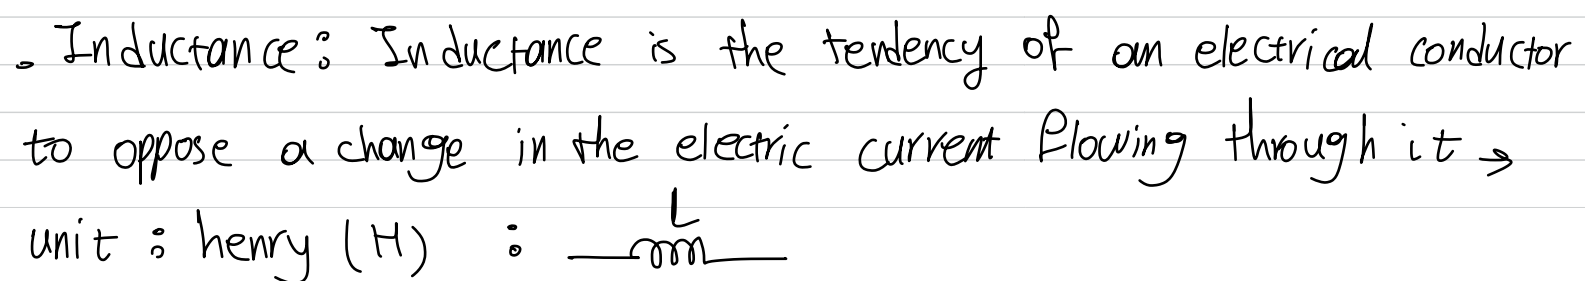 . Inductance: Inductance is the tendency of an electrical conductor
to oppose a change in the electric current flowing through it →
L
unit : henry (H) :